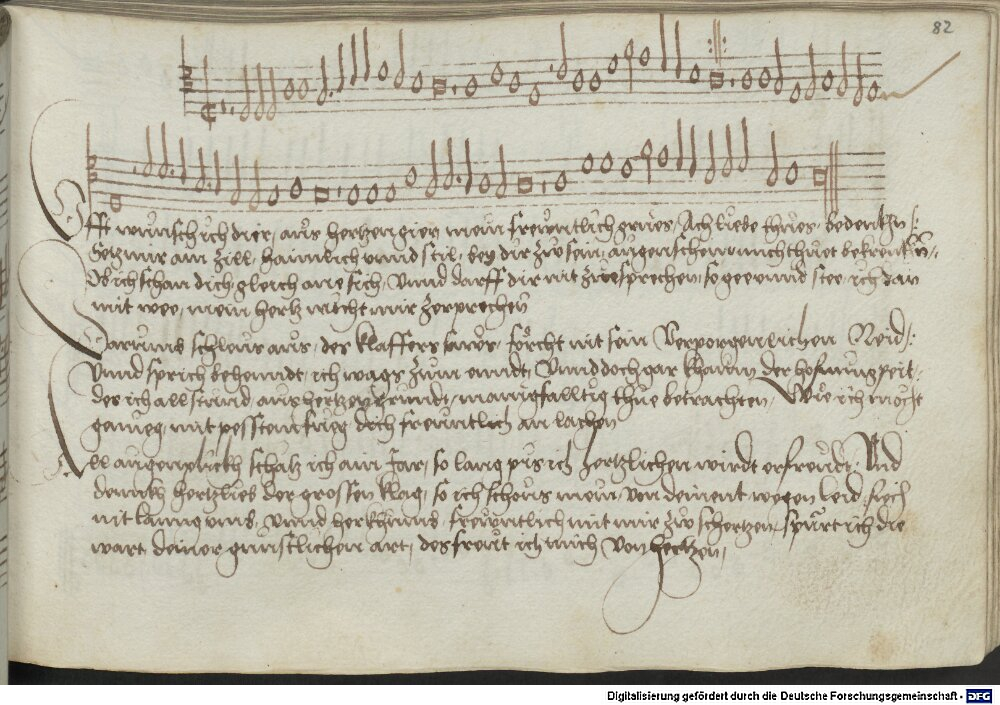 82
Offt wünsch ich dier, aüs hertzen gier, mein freüntlich grues, Ach liebe thües, bedenkhn
Setz mir ain Zill, haimlich vnnd stil, bey dir zw sein, augenschein mich thuet bekrenkhn
Ob ich schan dich, gleich an sich, Vnnd darff dir nit zuesprechen, so gee vnnd stee, ich dan
mit wee, mein hertz möcht mir zerprechen
Darumb schleüs aüs, des klaffers, förcht nit sein Verporgenlichen Neid,
Vnnd sprich behenndt, ich wags zum enndt, Vnnd doch gar khaum der hofnung peit,
der ich all stund, aus hertzen grundt, manigfalltig thue betrachten, Wie ich möcht
mit fueg doch freüntlich an lachen
All augenplickh schätz ich ain Jar, so lang pis ich hertzlichen wirdt erfreüdt, Vnd
denckh hertzlieb der grossen klag, so ich mein, von deinent wegen leid,
nit lanng vmb, vnnd her khumb, freüntlich mit mir zw schertzen, spürt ich die
wart deiner günstlichen art, des freüt ich mich Von hertzen,
Digitalisierung gefördert durch die Deutsche Forschungsgemeinschaft - DFG